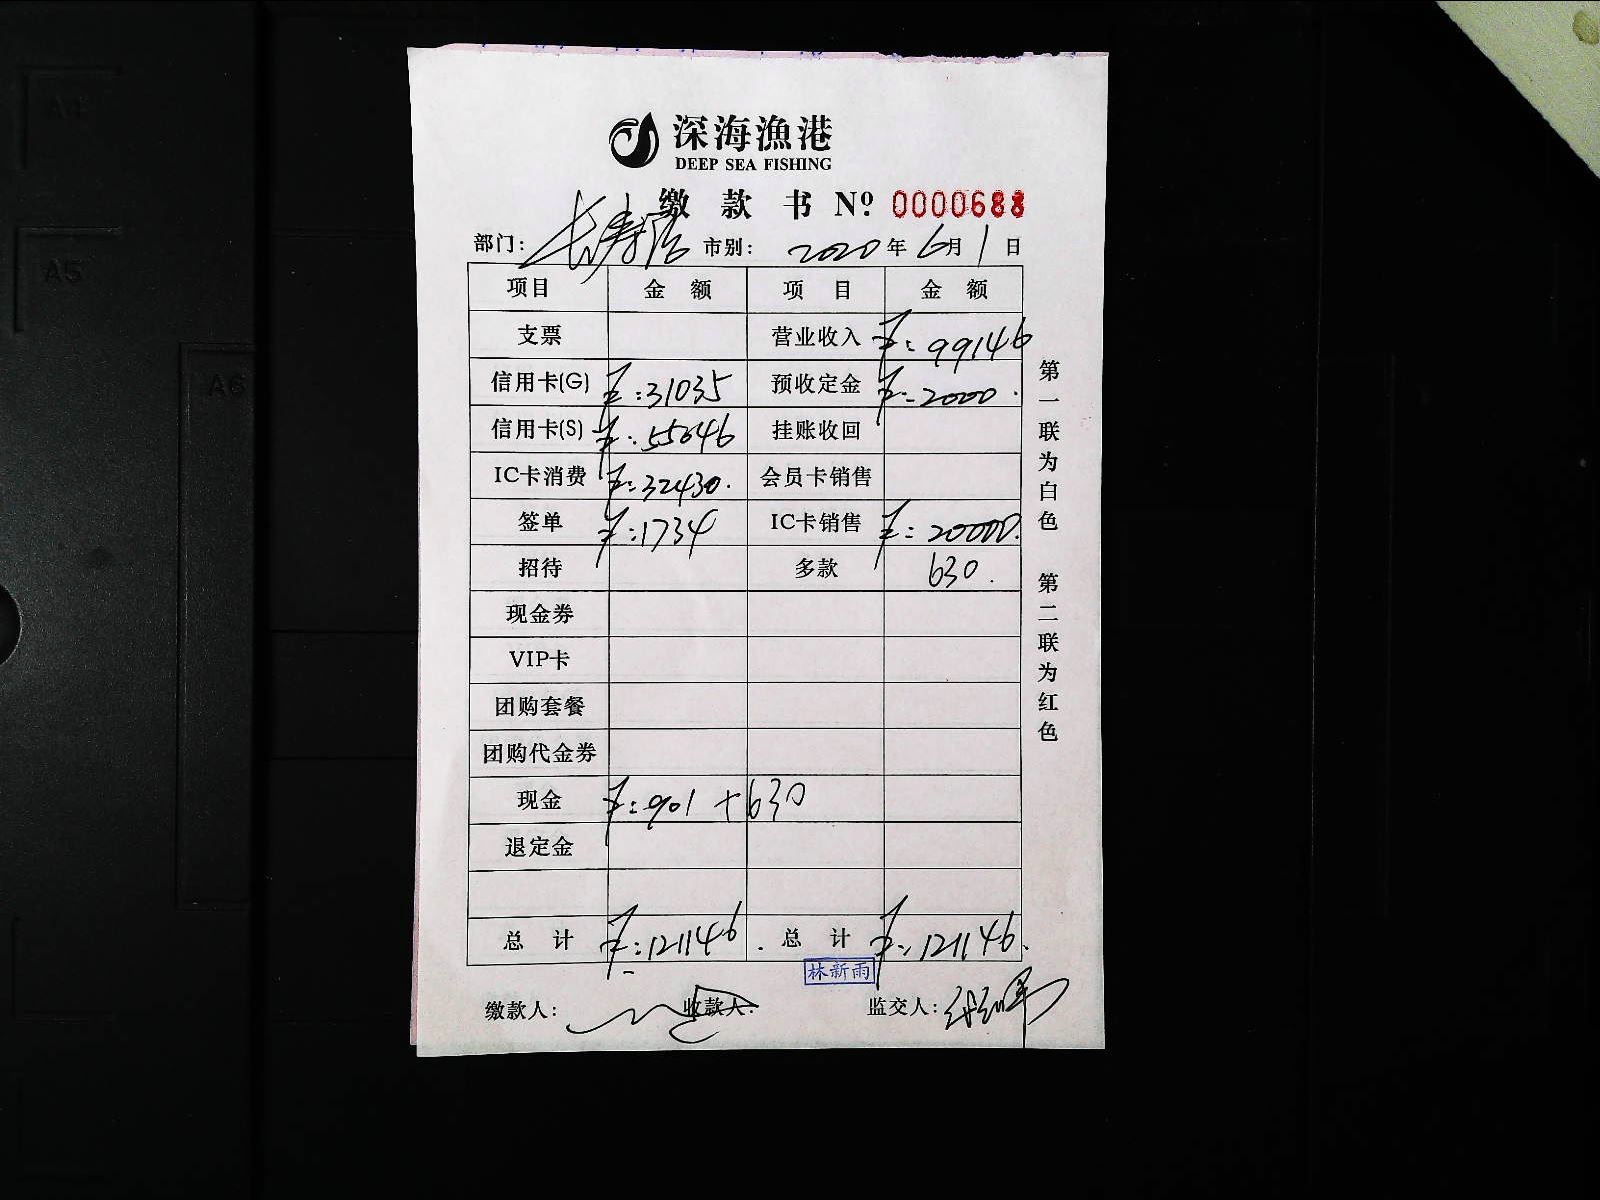 A4
A5
A6
深海漁港
DEEP SEA FISHING
缴款书 Nº 0000688
部门：长寿店 市别： 2020年6月1日
项目 金额 项目 金额
支票 营业收入 ¥:99146
信用卡(G) ¥:31035 预收定金 ¥:2000.
信用卡(S) ¥:55046 挂账收回
IC卡消费 ¥:32430. 会员卡销售
签单 ¥:1734 IC卡销售 ¥:20000.
招待 多款 630.
现金券
VIP卡
团购套餐
团购代金券
现金 ¥:901 +630
退定金
总计 ¥:121146. 总计 ¥:121146.
林新雨
缴款人： 收款人： 监交人：
第一联为白色 第二联为红色